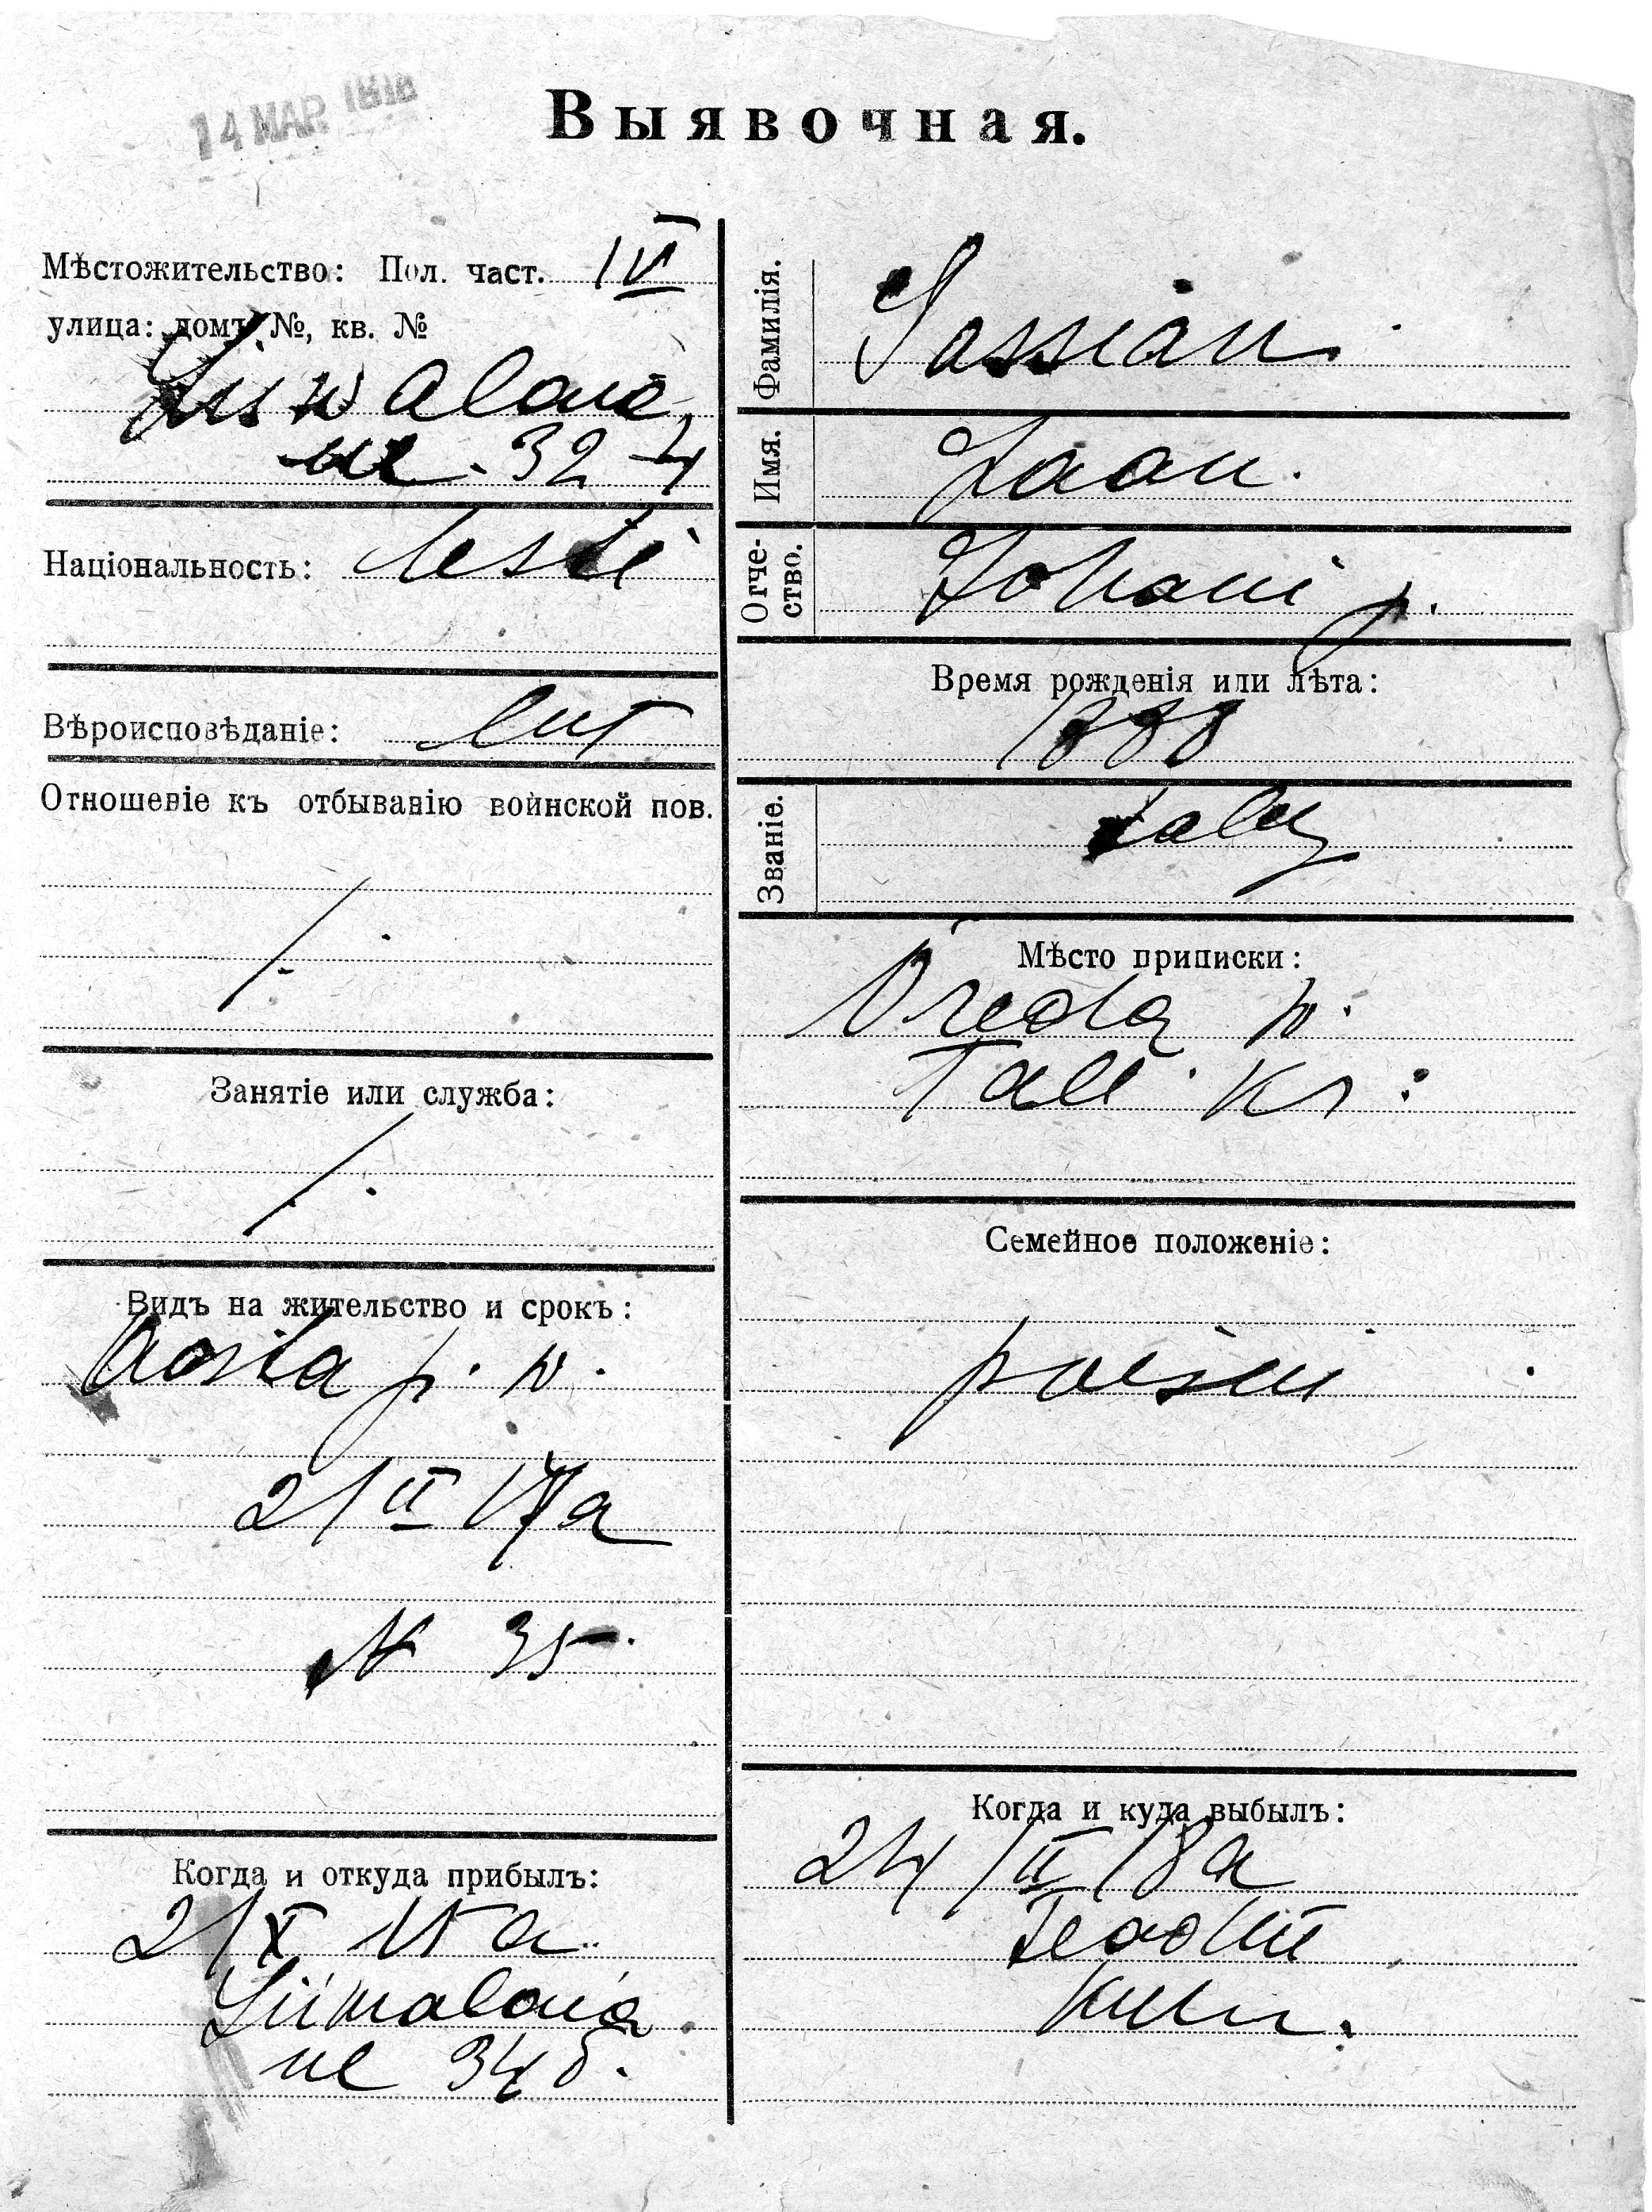 14 МАР. 1918
Выявочная.
Мѣстожительство: Пол. част. IV
улица: домъ №, кв. №
Liiwalaia
ul. 32-4
Національность: Eesti
Вѣроисповѣданіе: lut
Отношеніе къ отбыванію воинской пов.
/.
Занятіе или служба:
/.
Видъ на жительство и срокъ:
p. w.
21 II 17 a
N 35.
Когда и откуда прибылъ:
21 X 15 a.
Liiwalaia
ul 34 5.
Фамилія. Sassian.
Имя. Jaan.
Отчество. Johani p.
Время рожденія или лѣта:
1888
Званіе. talup
Мѣсто приписки:
w.
Tall. Kr:
Семейное положеніе:
poismi
Когда и куда выбылъ:
24 / II 18 a
Teadm